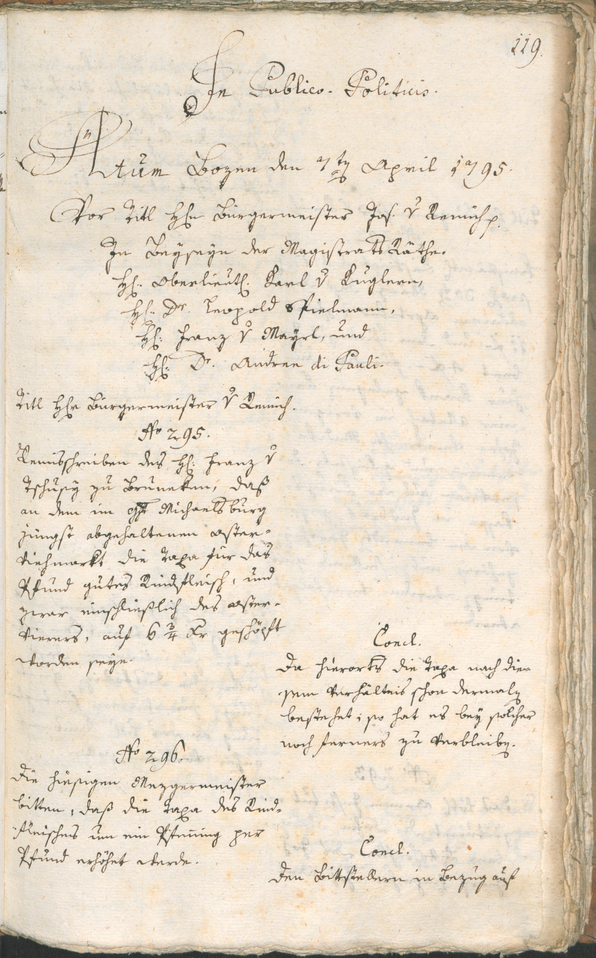 119.
In Publico-Politicis.
Actum Bozen den 7ten April 1795.
Vor Titl Hhn Bürgermeister Jos. v Remich
In Beyseyn der Magistrats Räthe.
Hh. Oberlieut. Karl v Kuglern,
Hh. Dr. Leopold Spielmann,
Hh. Franz v Mayrl, und
Hh. Dr. Andree di Pauli.
Titl Hhr Bürgermeister v Remich.
No 295.
des Hh. Franz v
Tschusy zu Bruneken, daß
an dem im Michaelsburg
jüngst abgehaltenen Oster-
Viehmarkt die Taxa für das
Pfund gutes Rindfleisch, und
zwar einschließlich des Oster-
vierers, auf 6 3/4 Kr geschöpft
worden seye.
Concl.
Da hierorts die Taxa nach die-
sem Verhältnis schon dermalen
bestehet; so hat es bey solcher
noch ferners zu verbleiben.
No 296.
Die hiesigen Mezgermeister
bitten, daß die Taxa des Rind-
fleisches um ein Pfenning per
Pfund erhöhet werde.
Concl.
Den Bittstellern in Bezug auf